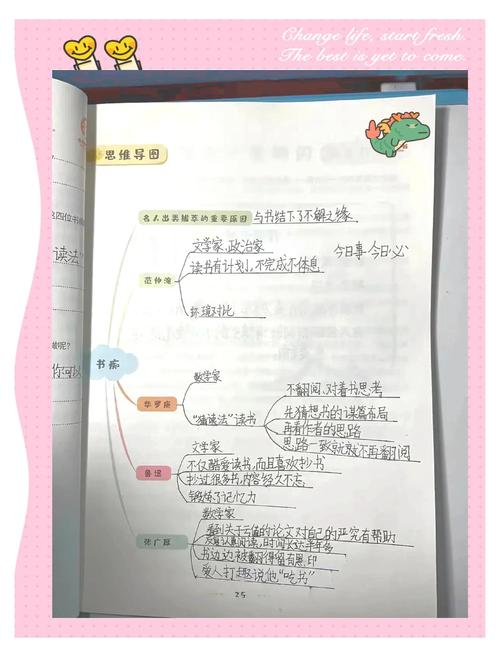 Change life, start fresh.
The best is yet to come.
思维导图
名人出类拔萃的重要原因 与书结下了不解之缘
文学家,政治家
今日事今日必
读书有计划,不完成不休息
范仲淹
环境对比
读法"
你可以
书痴
数学家
华罗庚
"猜读法"读书
不翻阅,对着书思考
先猜想书的谋篇布局
再看作者的思路
思路一致就就不再翻阅
文学家
鲁迅
不仅酷爱读书,而且喜欢抄书
抄过很多书,内容经久不忘
锻炼了记忆力
数学家
张广厚
看到关于云值的论文对自己的研究有帮助
反复认真阅读,时间长达半年多
书边边被翻得留有黑印
爱人打趣说他"吃书"
25